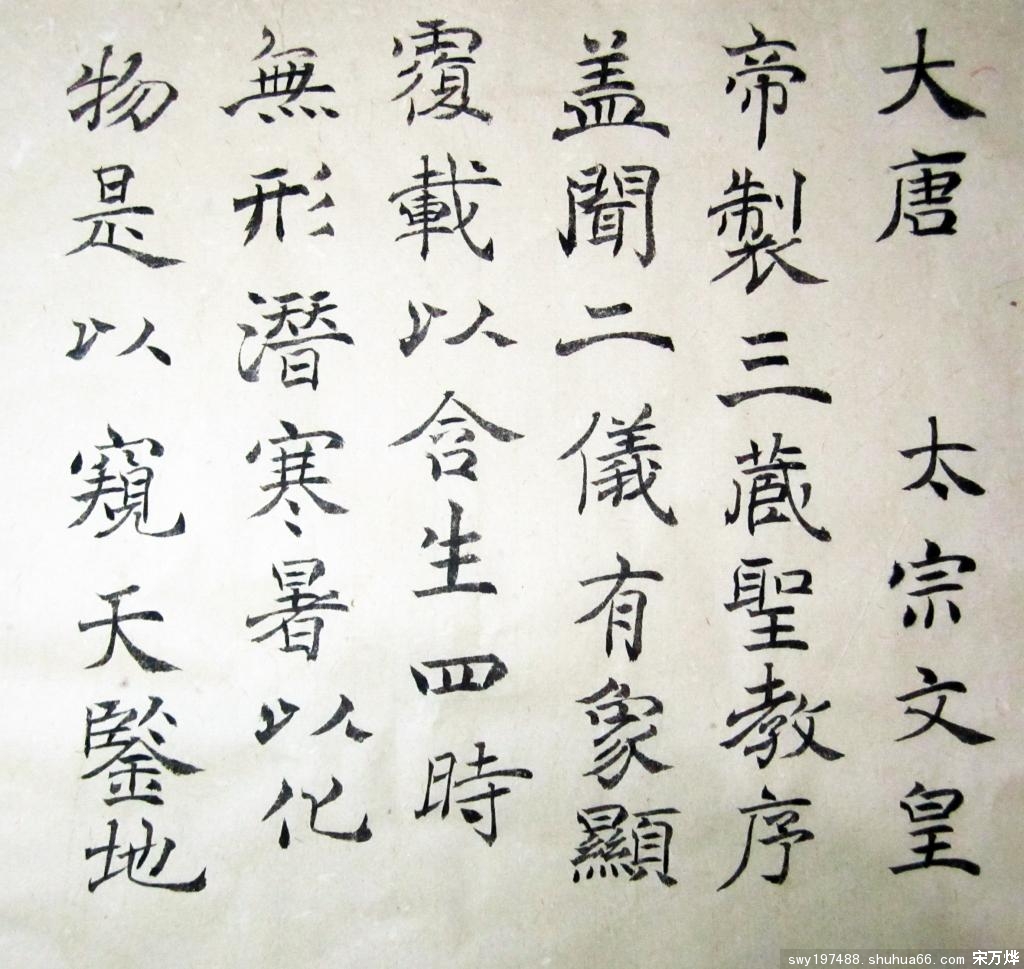 大唐 太宗文皇
帝製三藏聖教序
盖聞二儀有象顯
覆載以含生四時
無形潛寒暑以化
物是以窺天鑒地
swy197488.shuhua66.com 宋万烨